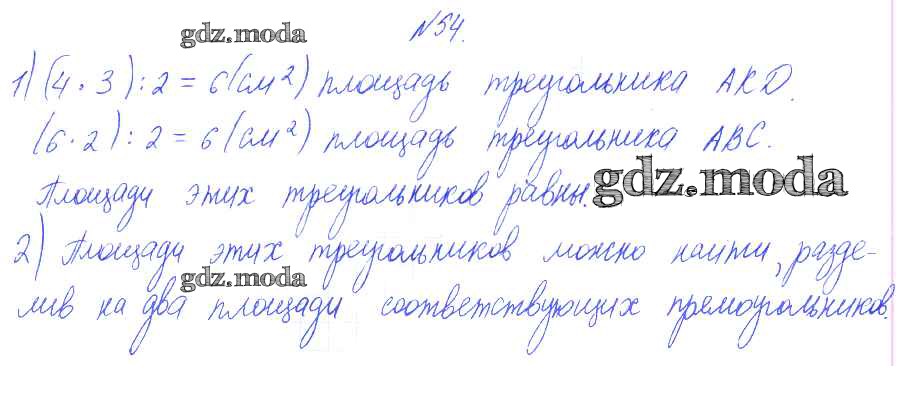 gdz.moda
№54.
1) (4 · 3) : 2 = 6 (см²) площадь треугольника AKD.
(6 · 2) : 2 = 6 (см²) площадь треугольника ABC.
Площади этих треугольников равны.
gdz.moda
2) Площади этих треугольников можно найти, разде-
gdz.moda
лив на два площади соответствующих прямоугольников.